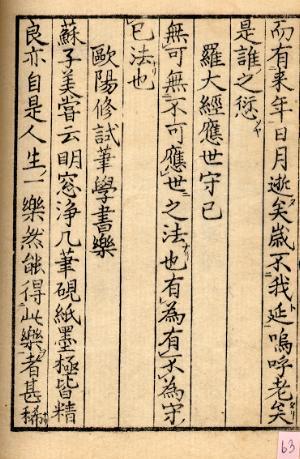 而有来年日月逝矣歳不我延嗚呼老矣
是誰之愆
羅大經應世守已
無可無不可應世之法也有為有不為守
已法也
歐陽修試筆學書樂
蘇子美嘗云明窓浄几筆硯紙墨極皆精
良亦自是人生一樂然能得此樂者甚稀
63